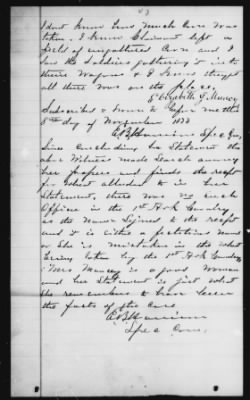 I dont know how much corn was
taken, I know Claimant left a
field of ungathered corn and I
saw the soldiers gathering it into
there wagons & I know they got
all there was on the place,
Elizabeth G. Muncy
Subscribed & sworn to before me this
8th day of November 1873
E B Harrison Spec Com
Since concluding her statement the
above witness made search among
her papers and finds the receipt
for what alluded to in her
statement, there was no such
officer in the 1st Ark Cavalry
as the name signed to the receipt
and it is either a fictitious name
or she is mistaken in the what
being taken by the 1st Ark Cavalry,
Mrs Muncy is a good woman
and her statement is just what
she remembers to have been
the facts of the case
E B Harrison
Spec Com.